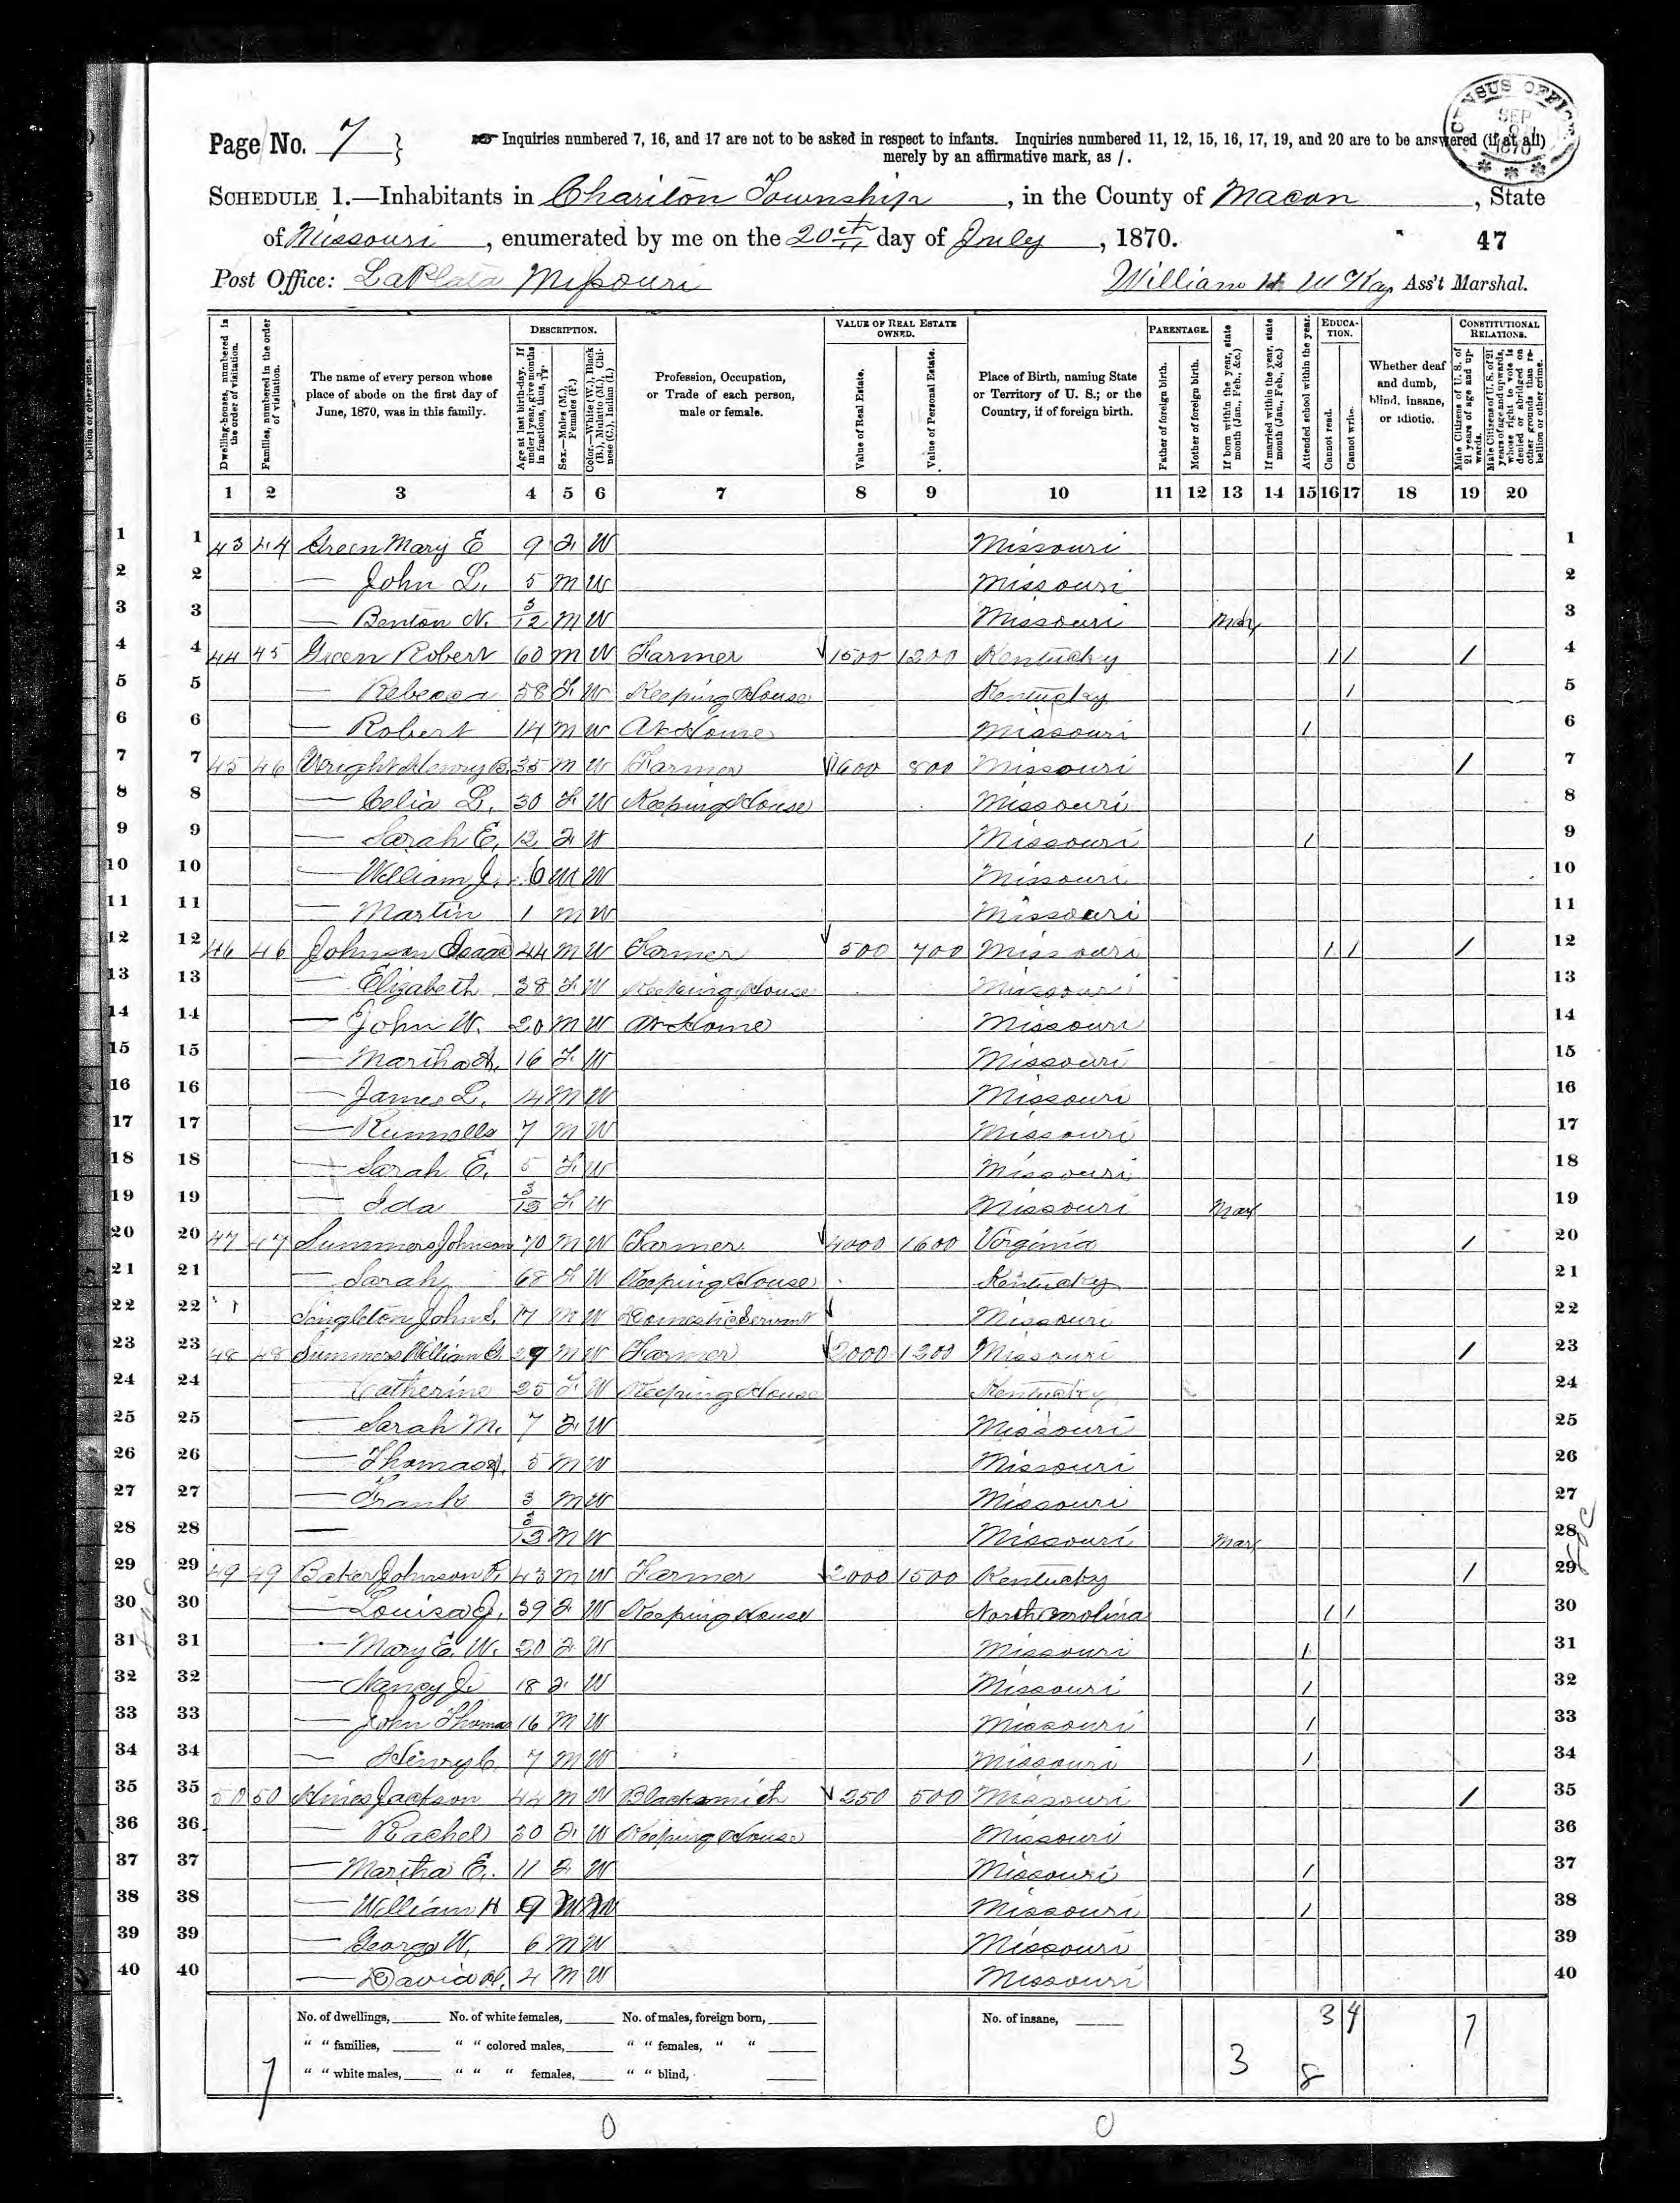 Page No. 7 }
Inquiries numbered 7, 16, and 17 are not to be asked in respect to infants. Inquiries numbered 11, 12, 15, 16, 17, 19, and 20 are to be answered (if at all)
merely by an affirmative mark, as /.
CENSUS OFFICE SEP 1870
SCHEDULE 1.—Inhabitants in Chariton Township, in the County of Macon, State
of Missouri, enumerated by me on the 20th day of July, 1870. 47
Post Office: LaPlata Missouri William H McKay, Ass't Marshal.
Dwelling-houses, numbered in the order of visitation.
Families, numbered in the order of visitation.
The name of every person whose place of abode on the first day of June, 1870, was in this family.
DESCRIPTION.
Age at last birth-day. If under 1 year, give months in fractions, thus, 3/12.
Sex.—Males (M.), Females (F.)
Color.—White (W.), Black (B.), Mulatto (M.), Chinese (C.), Indian (I.)
Profession, Occupation, or Trade of each person, male or female.
VALUE OF REAL ESTATE OWNED.
Value of Real Estate.
Value of Personal Estate.
Place of Birth, naming State or Territory of U. S.; or the Country, if of foreign birth.
PARENTAGE.
Father of foreign birth.
Mother of foreign birth.
If born within the year, state month (Jan., Feb., &c.)
If married within the year, state month (Jan., Feb., &c.)
Attended school within the year.
EDUCATION.
Cannot read.
Cannot write.
Whether deaf and dumb, blind, insane, or idiotic.
CONSTITUTIONAL RELATIONS.
Male Citizens of U. S. of 21 years of age and upwards.
Male Citizens of U. S. of 21 years of age and upwards, whose right to vote is denied or abridged on other grounds than rebellion or other crime.
1 2 3 4 5 6 7 8 9 10 11 12 13 14 15 16 17 18 19 20
1 1 43 44 Green Mary E 9 F W Missouri 1
2 2 — John L. 5 M W Missouri 2
3 3 — Benton N. 3/12 M W Missouri May 3
4 4 44 45 Green Robert 60 M W Farmer 1500 1200 Kentucky / / / 4
5 5 — Rebecca 58 F W Keeping House Kentucky / 5
6 6 — Robert 14 M W At Home Missouri / 6
7 7 45 46 Wright Henry B. 35 M W Farmer 1600 800 Missouri / 7
8 8 — Celia L. 30 F W Keeping House Missouri 8
9 9 — Sarah E. 12 F W Missouri / 9
10 10 — William J. 6 M W Missouri 10
11 11 — Martin 1 M W Missouri 11
12 12 46 46 Johnson Isaac 44 M W Farmer 500 700 Missouri / / / 12
13 13 — Elizabeth 38 F W Keeping House Missouri 13
14 14 — John W. 20 M W At Home Missouri 14
15 15 — Martha A. 16 F W Missouri 15
16 16 — James L. 14 M W Missouri 16
17 17 — Runnells 7 M W Missouri 17
18 18 — Sarah E. 5 F W Missouri 18
19 19 — Ida 3/12 F W Missouri May 19
20 20 47 47 Summers Johnson 70 M W Farmer 4000 1600 Virginia / 20
21 21 — Sarah 68 F W Keeping House Kentucky 21
22 22 Singleton John S. 17 M W Domestic Servant Missouri 22
23 23 48 48 Summers William G. 29 M W Farmer 2000 1200 Missouri / 23
24 24 Catherine 25 F W Keeping House Kentucky 24
25 25 — Sarah M. 7 F W Missouri 25
26 26 — Thomas 5 M W Missouri 26
27 27 — Frank 3 M W Missouri 27
28 28 — 3/12 M W Missouri May 28
29 29 49 49 Baker Johnson R. 43 M W Farmer 2000 1500 Kentucky / 29
30 30 — Louisa J. 39 F W Keeping House North Carolina / / 30
31 31 — Mary E. W. 20 F W Missouri / 31
32 32 — Nancy J. 18 F W Missouri / 32
33 33 — John Thomas 16 M W Missouri / 33
34 34 — Henry C. 7 M W Missouri / 34
35 35 50 50 Hines Jackson 44 M W Blacksmith 250 500 Missouri / 35
36 36 — Rachel 30 F W Keeping House Missouri 36
37 37 — Martha E. 11 F W Missouri / 37
38 38 — William H 9 M W Missouri / 38
39 39 — George W. 6 M W Missouri 39
40 40 — David 4 M W Missouri 40
No. of dwellings, No. of white females, No. of males, foreign born, No. of insane, 3 4
" " families, " " colored males, " " females, " " 7
" " white males, " " " females, " " blind, 7 3 8
0 0